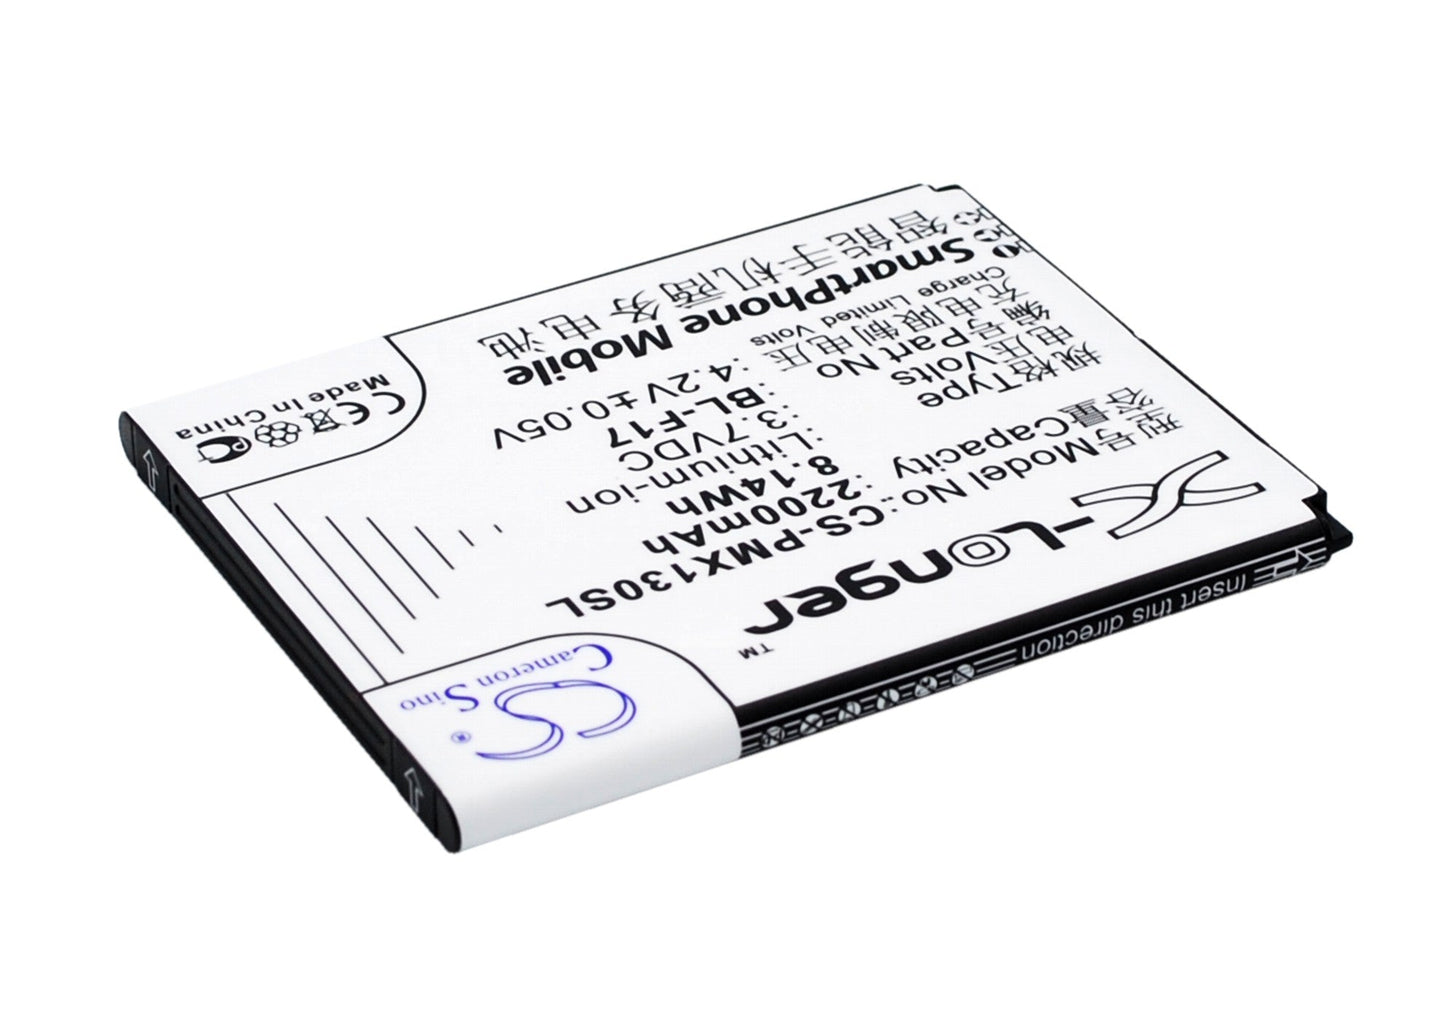 X-Longer™
型号Model No.: CS-PMX130SL
容量Capacity 2200mAh
8.14Wh
规格Type Lithium-ion
电压Volts 3.7VDC
编号Part No BL-F17
充电限制电压 4.2V±0.05V
Charge Limited Volts
SmartPhone Mobile
智能手机商务电池
CS
Cameron Sino
®
CE
Made In China
Insert this direction